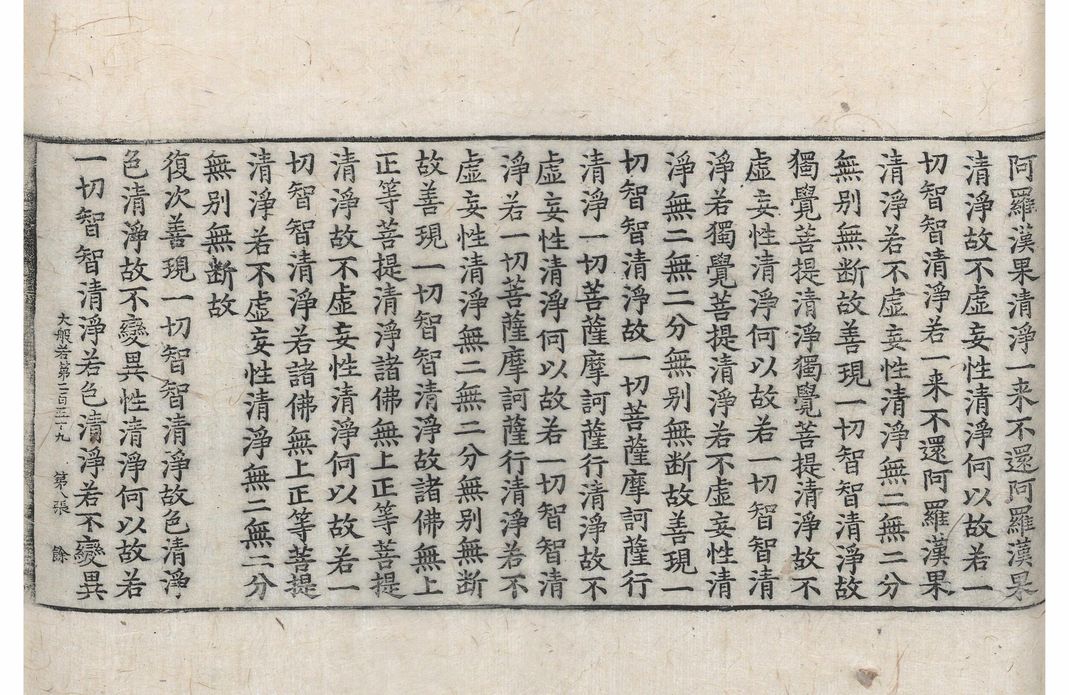 阿羅漢果清淨一来不還阿羅漢果
清淨故不虛妄性清淨何以故若一
切智智清淨若一来不還阿羅漢果
清淨若不虛妄性清淨無二無二分
無别無断故善現一切智智清淨故
獨覺菩提清淨獨覺菩提清淨故不
虛妄性清淨何以故若一切智智清
淨若獨覺菩提清淨若不虛妄性清
淨無二無二分無别無断故善現一
切智智清淨故一切菩薩摩訶薩行
清淨一切菩薩摩訶薩行清淨故不
虛妄性清淨何以故若一切智智清
淨若一切菩薩摩訶薩行清淨若不
虛妄性清淨無二無二分無别無断
故善現一切智智清淨故諸佛無上
正等菩提清淨諸佛無上正等菩提
清淨故不虛妄性清淨何以故若一
切智智清淨若諸佛無上正等菩提
清淨若不虛妄性清淨無二無二分
無别無断故
復次善現一切智智清淨故色清淨
色清淨故不變異性清淨何以故若
大般若第二百五十九 第八張 餘
一切智智清淨若色清淨若不變異